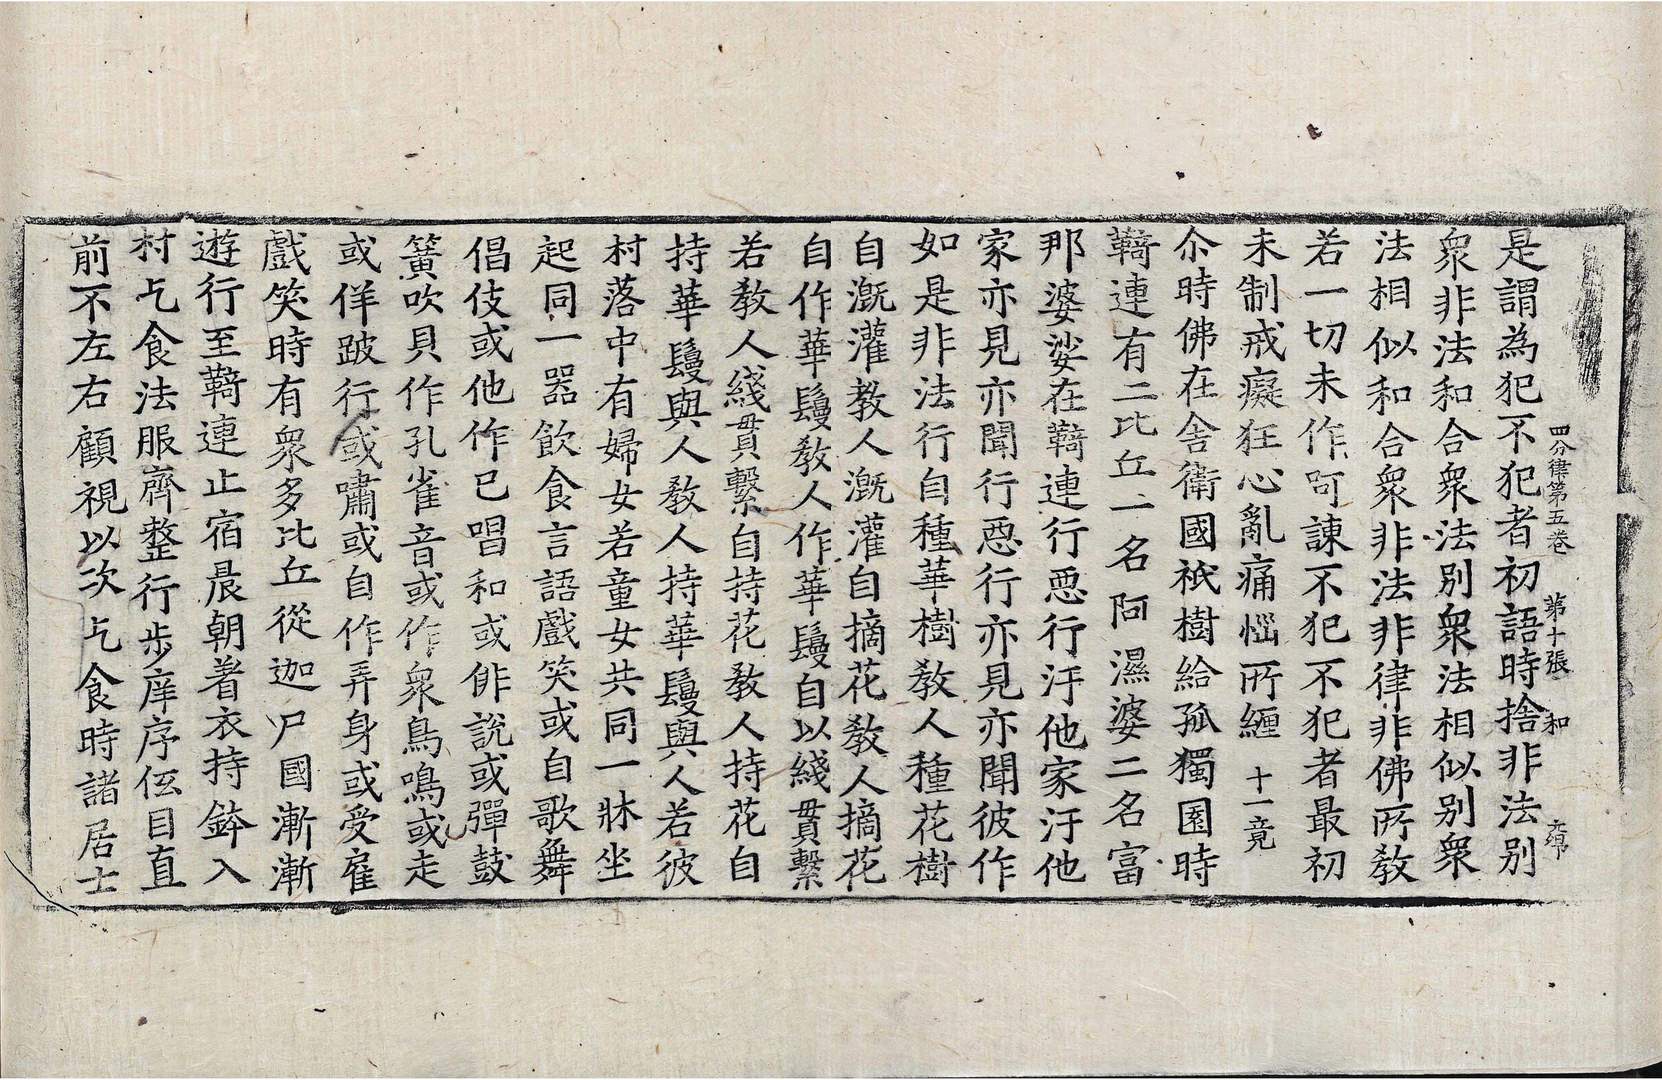 四分律第五卷 第十張 和
是謂為犯不犯者初語時捨非法別
衆非法和合衆法別衆法相似別衆
法相似和合衆非法非律非佛所教
若一切未作呵諫不犯不犯者最初
未制戒癡狂心亂痛惱所纏 十一竟
尒時佛在舍衛國祇樹給孤獨園時
鞞連有二比丘一名阿濕婆二名富
那婆娑在鞞連行惡行汙他家汙他
家亦見亦聞行惡行亦見亦聞彼作
如是非法行自種華樹教人種花樹
自漑灌教人漑灌自摘花教人摘花
自作華鬘教人作華鬘自以綫貫繫
若教人綫貫繫自持花教人持花自
持華鬘與人教人持華鬘與人若彼
村落中有婦女若童女共同一牀坐
起同一器飲食言語戲笑或自歌舞
倡伎或他作已唱和或俳說或彈鼓
簧吹貝作孔雀音或作衆鳥鳴或走
或佯跛行或嘯或自作弄身或受雇
戲笑時有衆多比丘從迦尸國漸漸
遊行至鞞連止宿晨朝着衣持鉢入
村乞食法服齊整行步庠序伍目直
前不左右顧視以次乞食時諸居士